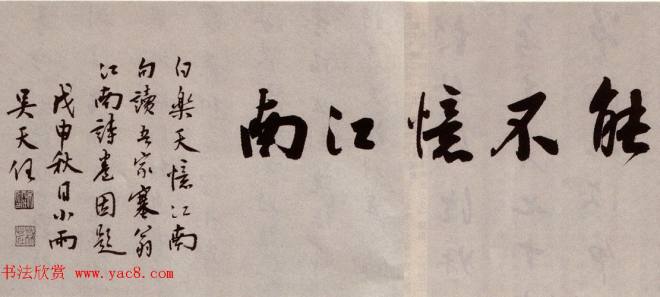 能不憶江南
白樂天憶江南
句讀吾家塞翁
江南詩卷因題
戊申秋日小雨
吳天任
书法欣赏 www.yac8.com